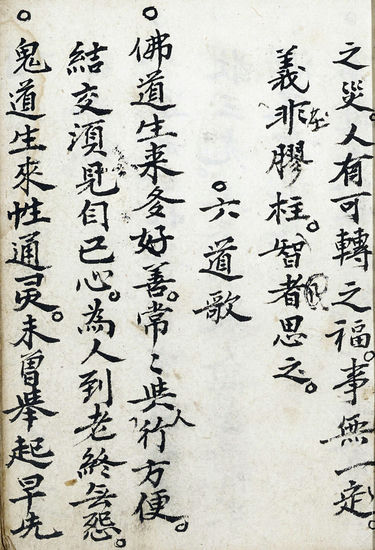 之災。人有可轉之福。事無一定。
義非在膠柱。智者思之。
○六道歌
○佛道生来多好善。常〻與人行方便。
結交須見自己心。為人到老終無怨。
○鬼道生來性通灵。未曾舉起早先